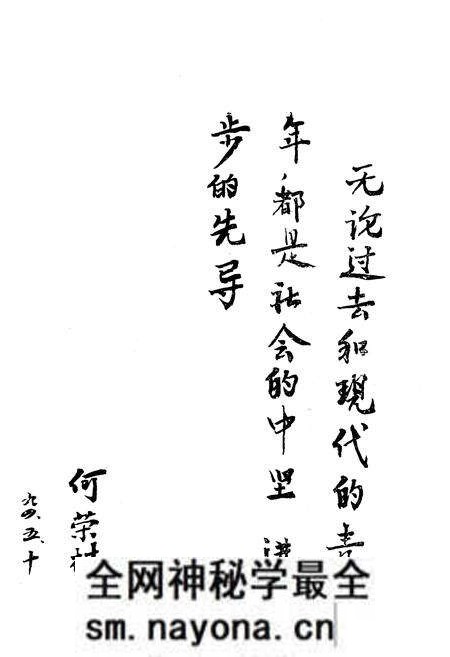 无论过去和現代的青
年，都是社会的中坚 進
步的先导
何荣
九四、五、十
全网神秘学最全
sm.nayona.cn